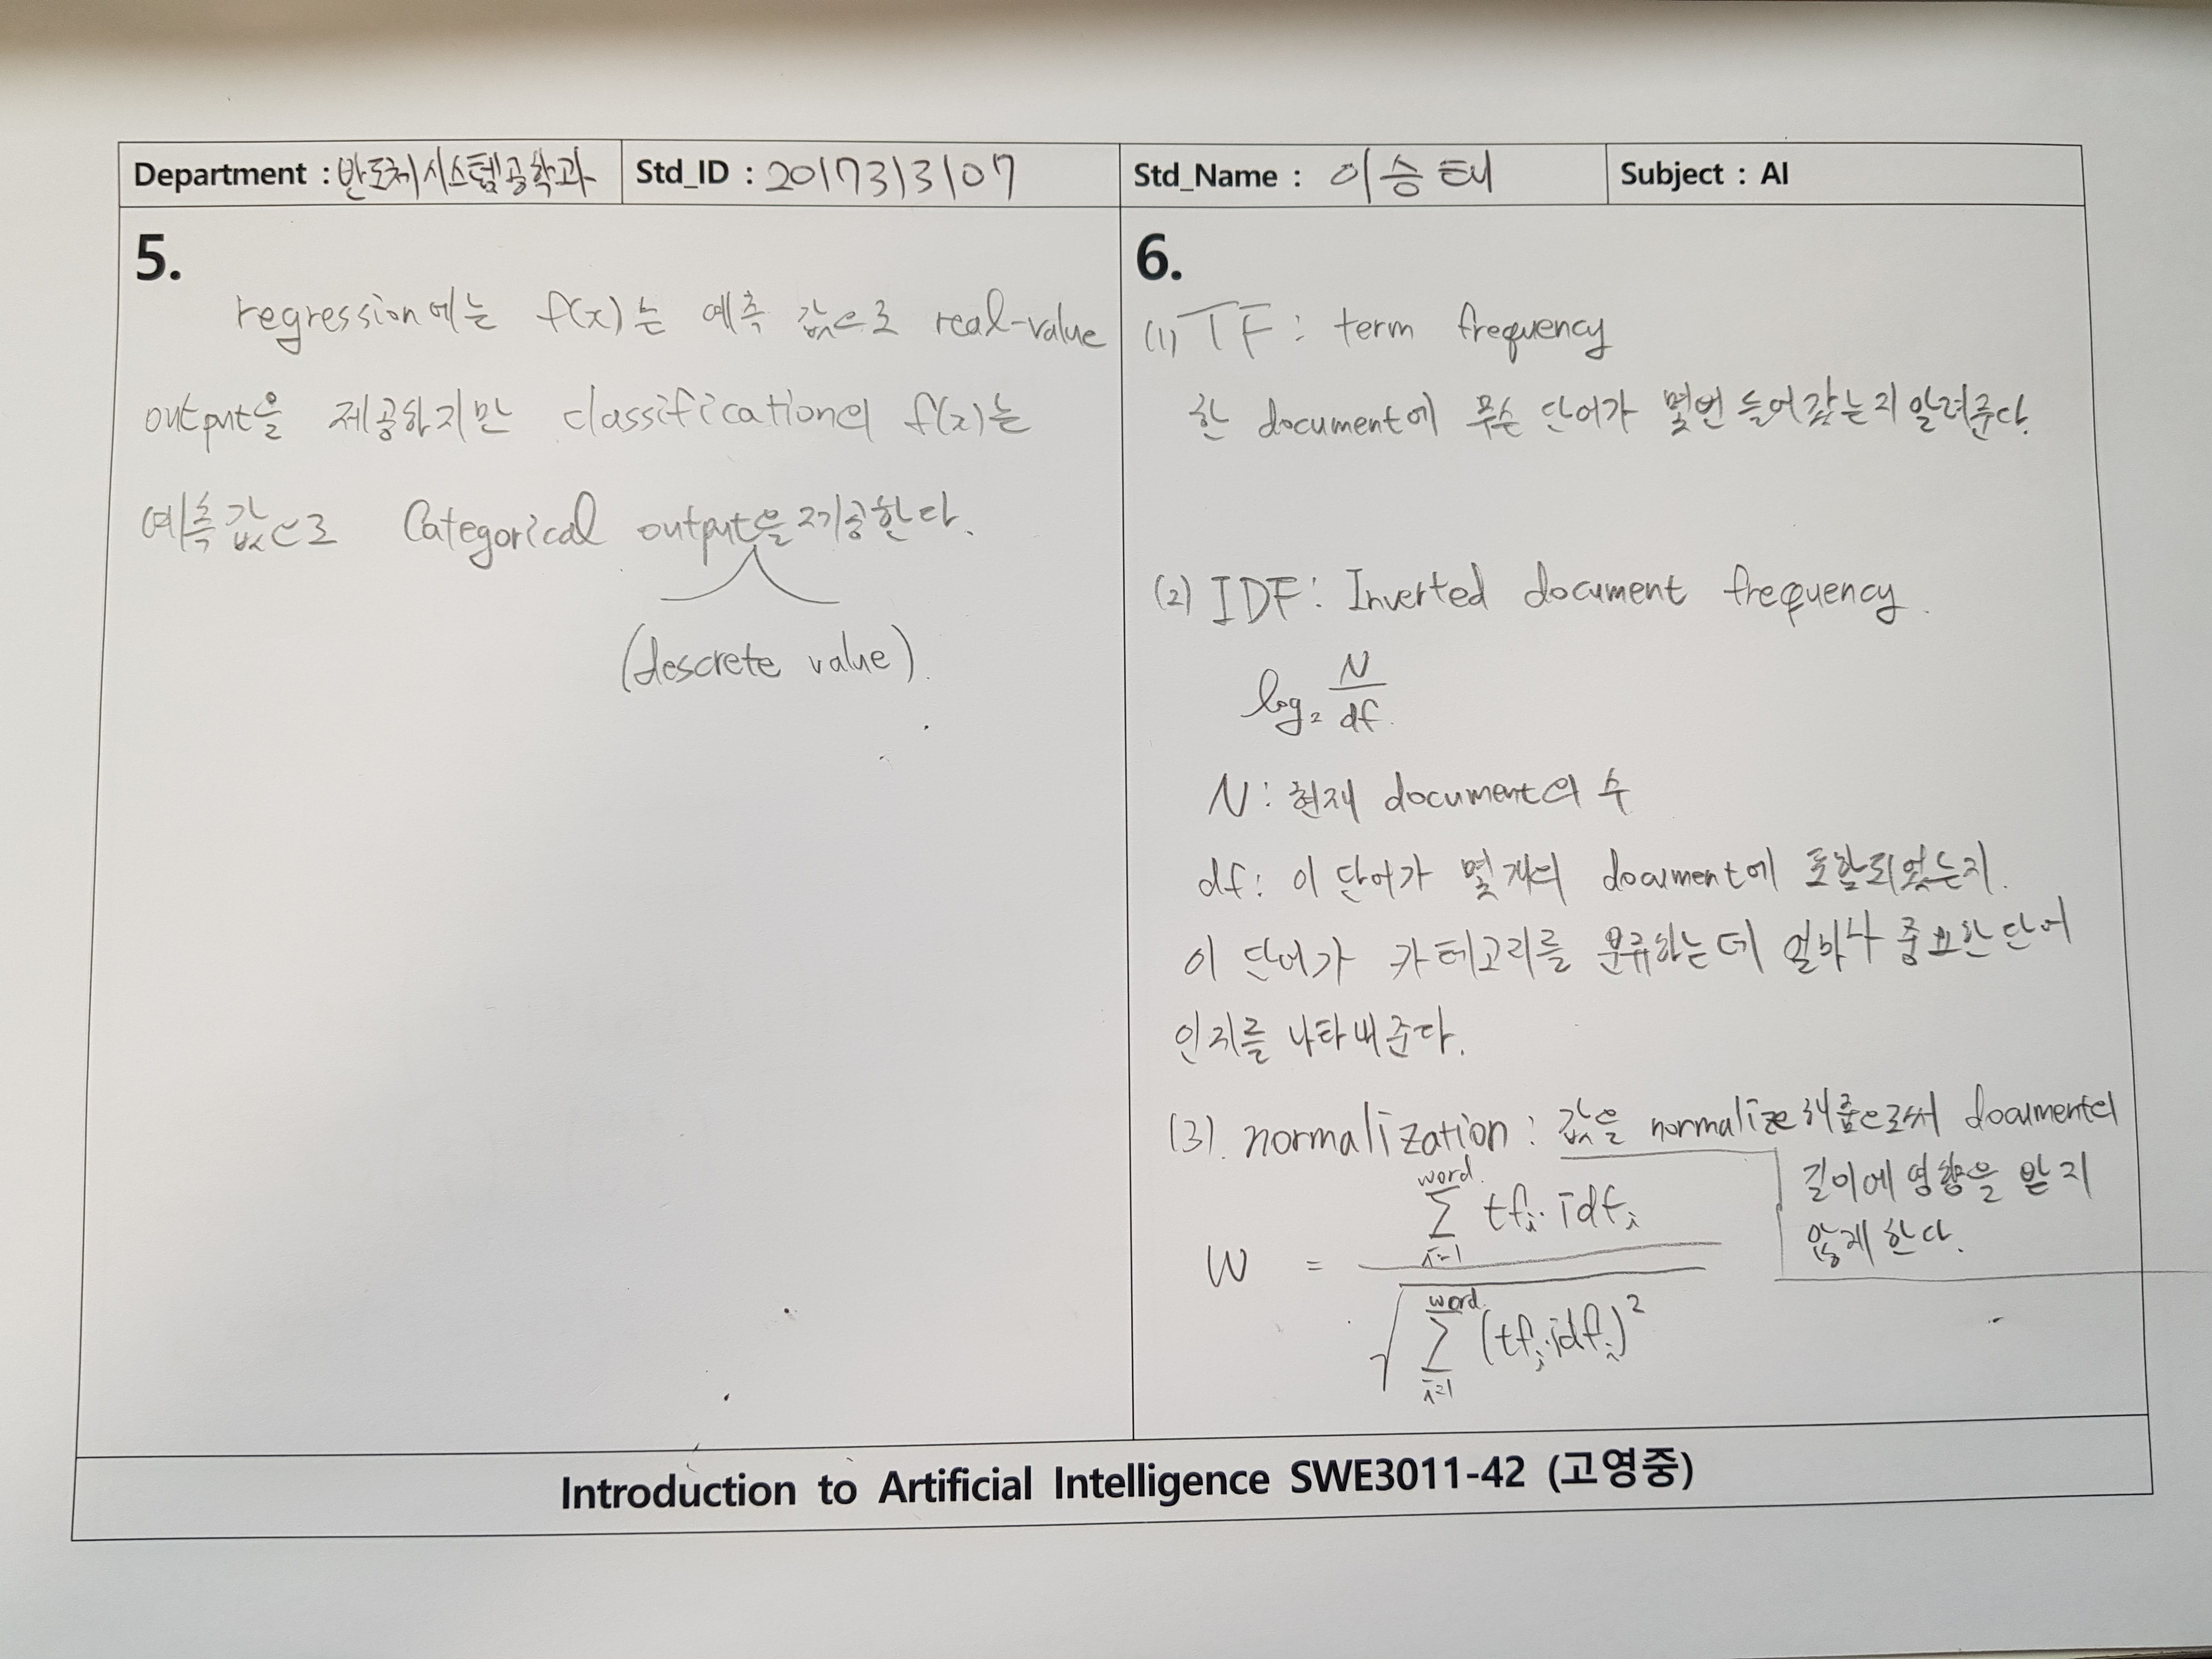 Department : 반도체시스템공학과 Std_ID : 2017313107 Std_Name : 이승태 Subject : AI
5.
regression에는 f(x)는 예측 값으로 real-value
output을 제공하지만 classification의 f(x)는
예측 값으로 Categorical output을 제공한다.
(descrete value).
6.
(1) TF : term frequency
한 document에 특수 단어가 몇번 들어갔는지 알려준다.
(2) IDF : Inverted document frequency.
log₂ N/df.
N : 전체 document의 수
df : 이 단어가 몇개의 document에 포함되있는지.
이 단어가 카테고리를 분류하는데 얼마나 중요한 단어
인지를 나타내준다.
(3). normalization : 값을 normalize해줌으로써 document의
길이에 영향을 받지
않게 한다.
W = Σ_{i=1}^{word} tf_i · idf_i / √Σ_{i=1}^{word} (tf_i · idf_i)²
Introduction to Artificial Intelligence SWE3011-42 (고영중)